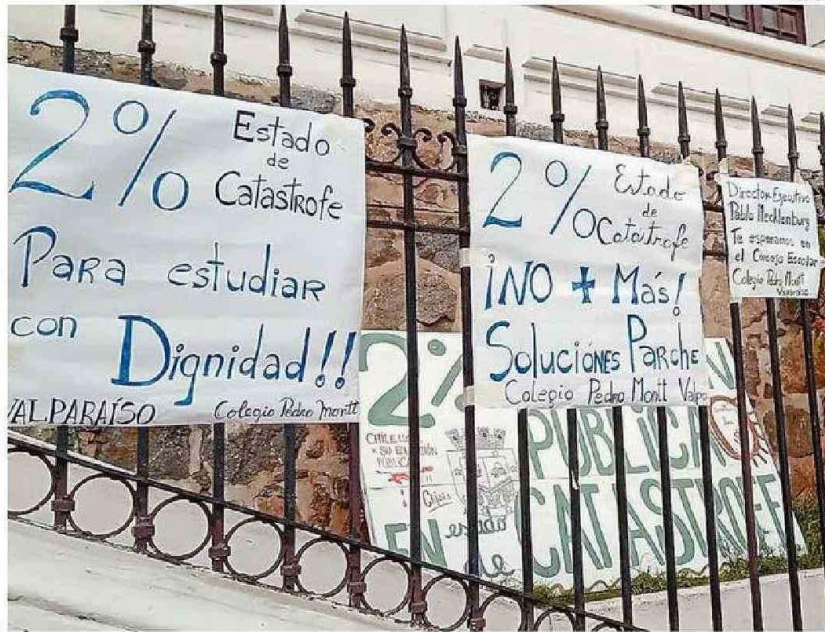 2% Estado
de
Catastrofe
Para estudiar
con Dignidad!!
VALPARAÍSO Colegio Pedro Montt
2% Estado
de
Catastrofe
¡NO + Más!
Soluciónes Parche
Colegio Pedro Montt Valpo
Director Ejecutivo
Pablo Mecklenburg
Te esperamos en
el Consejo Escolar
Colegio Pedro Montt
Valparaíso
2%
PUBLICA
EN estado de CATASTROFE